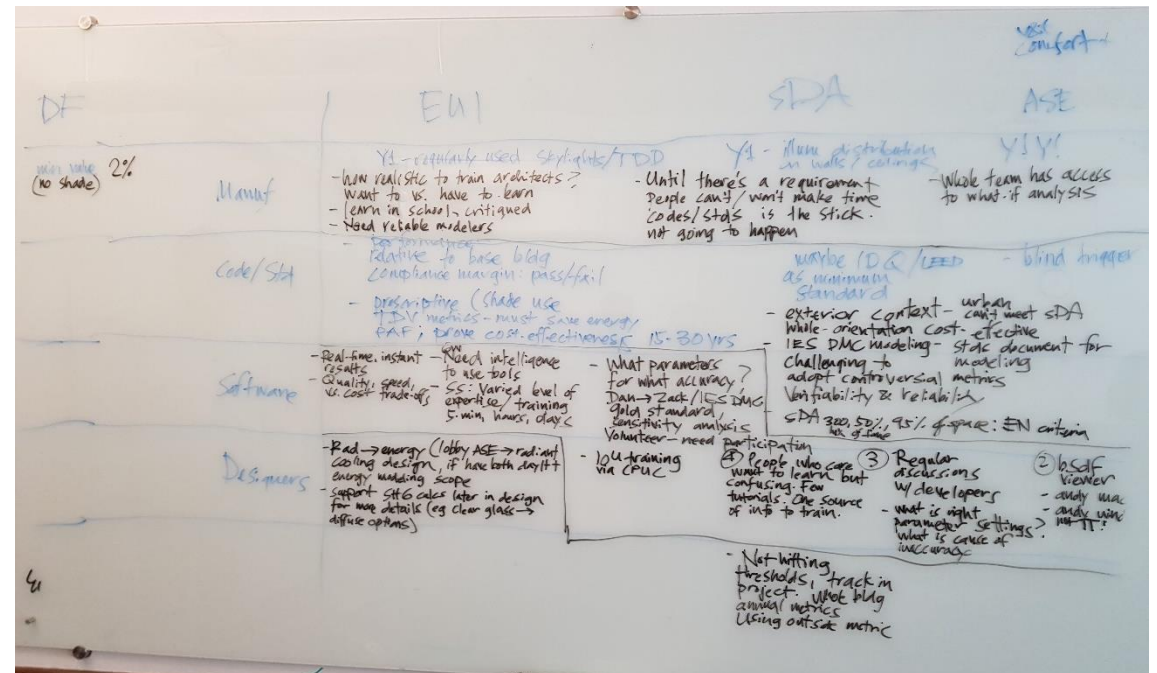 comfort
DF
EUI
sDA
ASE
min value
(no shade) 2%
Manuf
Y1 - regularly used skylights/TDD
- how realistic to train architects?
want to vs. have to learn
- learn in school, critiqued
- Need reliable modelers
Y1 - illum distribution
in walls/ceilings
- Until there's a requirement
people can't/won't make time
codes/stds is the stick.
not going to happen
Y1 Y!
- Whole team has access
to what-if analysis
Code/Std
- performance
relative to base bldg
compliance margin: pass/fail
- prescriptive (shade use
TDV metrics - must save energy
PAF; prove cost-effectiveness 15-30 yrs
maybe IDQ/LEED - blind trigger
as minimum
standard
- exterior context - urban
can't meet sDA
whole-orientation cost-effective
- IES DMC modeling - stds document for
challenging to modeling
adopt controversial metrics
Verifiability & reliability
- sDA 300, 50%, 95% of space: EN criteria
of time
Software
- Real-time, instant
results
- Quality, speed,
vs. cost trade-offs
- Need intelligence
to use tools
- SS: Varied level of
expertise/training
5-min, hours, days
- What parameters
for what accuracy?
Dan → Zack/IES DMC
gold standard,
sensitivity analysis
Volunteer - need participation
Designers
- Rad → energy (lobby ASE → radiant
cooling design, if have both daylt +
energy modeling scope
- support SHG calcs later in design
for more details (eg clear glass →
diffuse options)
- IOU training
via CPUC
④ People who care
want to learn but
confusing. Few
tutorials. One source
of info to train.
③ Regular
discussions
w/ developers
- what is right
parameter settings?
what is cause of
inaccuracy
② bsdf
viewer
- andy mac
- andy
- Not hitting
thresholds, track in
project. bldg
annual metrics
Using outside metric